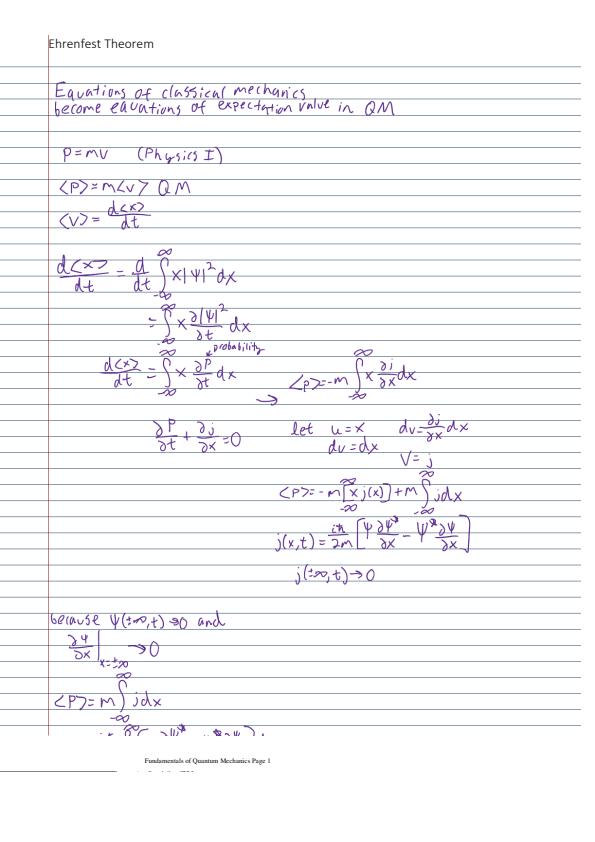 Ehrenfest Theorem
Equations of classical mechanics
become equations of expectation value in QM
P=mv (Physics I)
<P>=m<v> QM
<V>= d<x>/dt
d<x>/dt = d/dt ∫_{-∞}^{∞} x|Ψ|² dx
= ∫_{-∞}^{∞} x ∂|Ψ|²/∂t dx
probability
d<x>/dt = ∫_{-∞}^{∞} x ∂P/∂t dx → <P>=-m ∫_{-∞}^{∞} x ∂j/∂x dx
∂P/∂t + ∂j/∂x =0
let u=x dv=∂j/∂x dx
du=dx V=j
<P>=-m[x j(x)]_{-∞}^{∞}+m ∫_{-∞}^{∞} jdx
j(x,t)= iħ/2m [Ψ ∂Ψ*/∂x - Ψ* ∂Ψ/∂x]
j(±∞,t)→0
because Ψ(±∞,t)→0 and
∂Ψ/∂x |_{x=±∞} →0
<P>=m ∫_{-∞}^{∞} jdx
Fundamentals of Quantum Mechanics Page 1